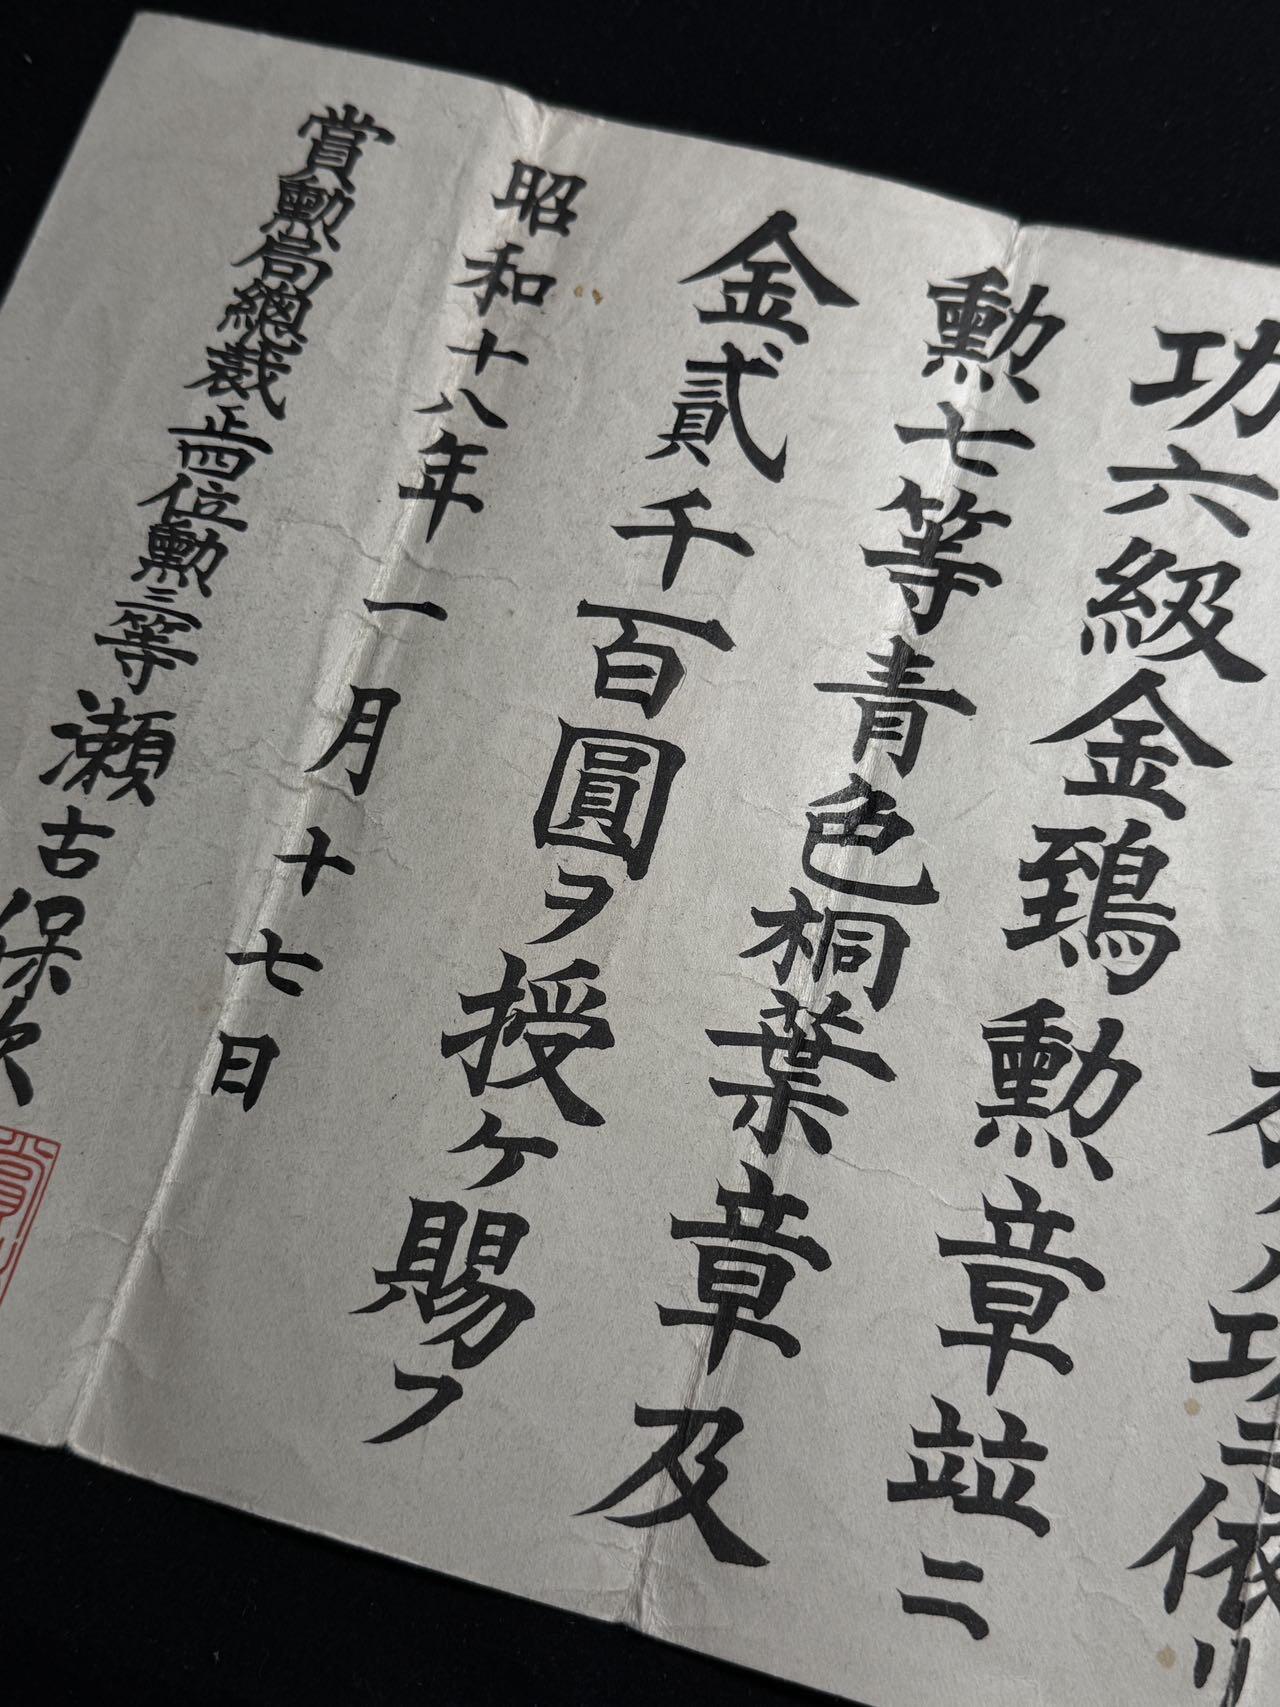 功ニ依リ
功六級金鵄勲章竝ニ
勲七等青色桐葉章及
金貳千百圓ヲ授ケ賜フ
昭和十八年一月十七日
賞勲局總裁正四位勲三等瀬古保次